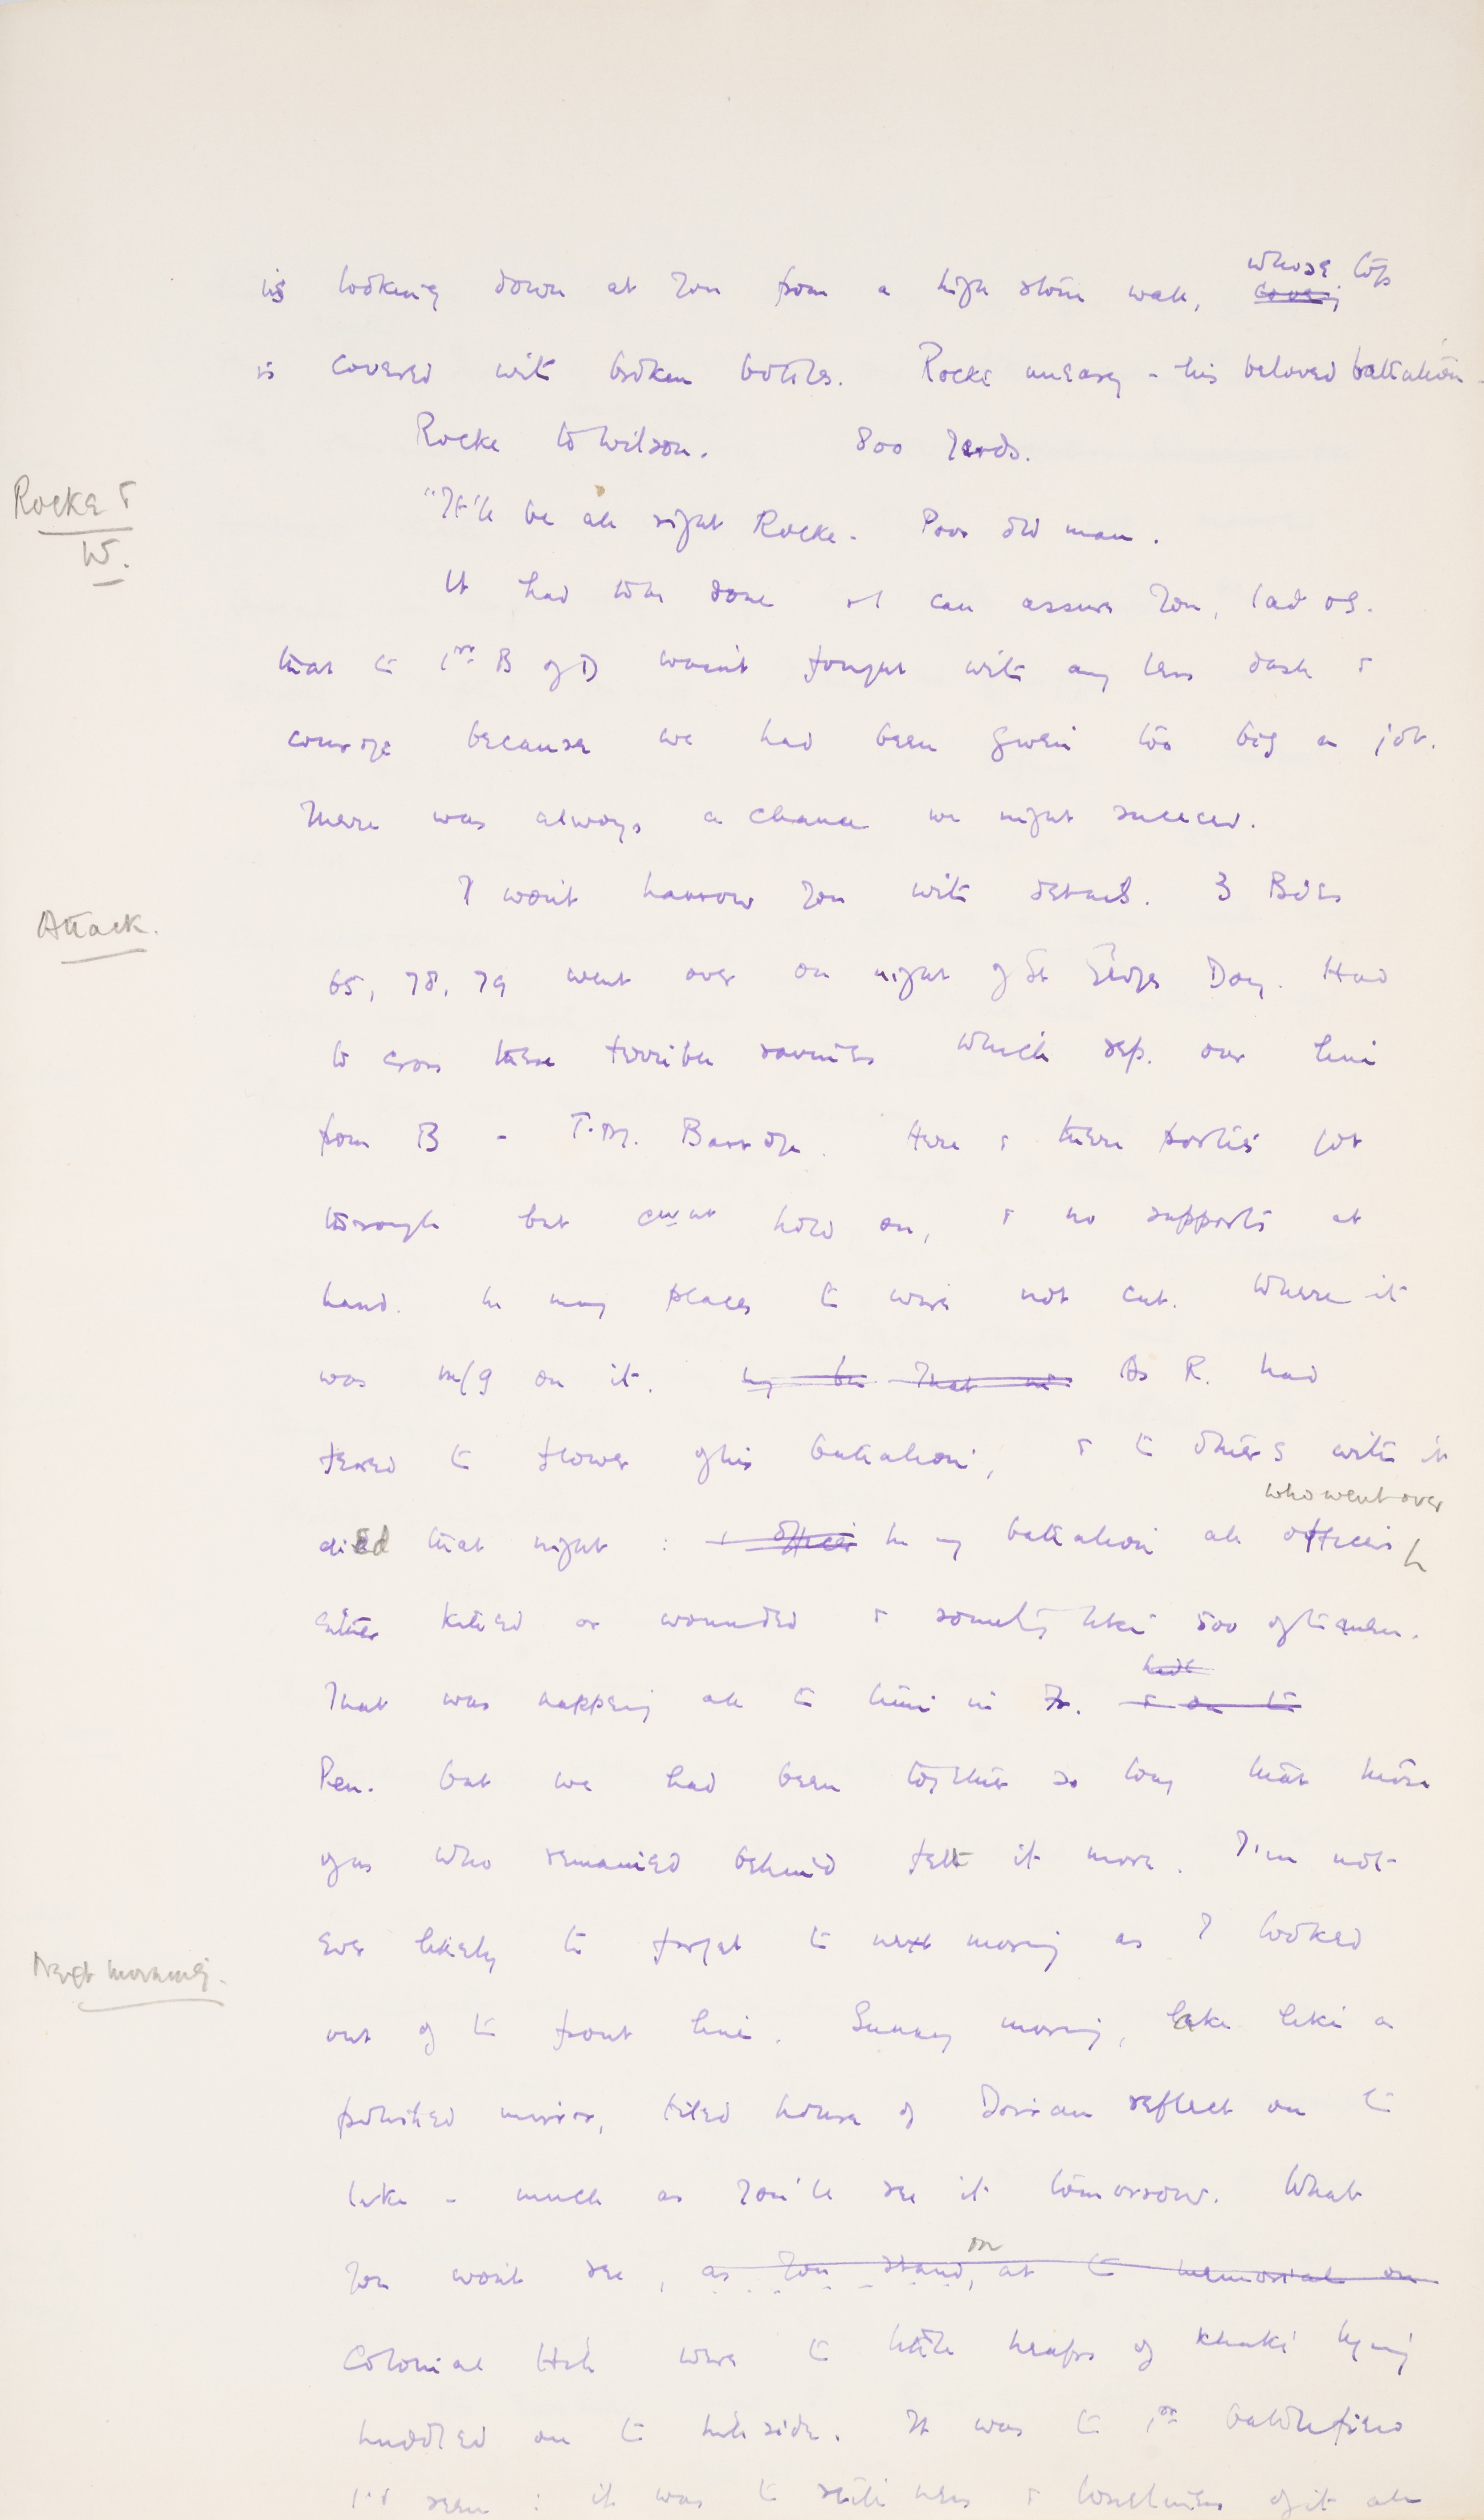 is looking down at you from a high stone wall, whose top
is covered with broken bottles. Rocke uneasy - his beloved battalion -
Rocke to Wilson. 800 yards.
Rocke &
W.
"It'll be all right Rocke. Poor old man.
It had to be done & I can assure you, lad
that t 1st B of D wasn't fought with any less dash &
courage because we had been given too big a job.
There was always a chance we might succeed.
Attack.
I won't harrow you with details. 3 Bdes
65, 78, 79 went over on night of St Georges Day. Had
to cross these terrible ravines which sep. our line
from B - T.M. Barrage. Here & there parties got
through but hold on, & no supports at
hand. In many places t wire not cut. Where it
was m/g on it. As R. had
feared t flower of his battalion, & t others with it
who went over
died that night : In my battalion all officers
either killed or wounded & something like 500 of t men.
That was happening all t time in Fr.
Pen. but we had been together so long that those
of us who remained behind felt it more. I'm not
ever likely to forget t next morning as I looked
Next morning.
out of t front line. Sunny morning, lake like a
polished mirror, tiled house of Doiran reflect on t
lake - much as you'll see it tomorrow. What
you won't see, as you stand, on at t memorial on
Colonial Hill were t little heaps of khaki lying
huddled on t hill side. It was t 1st battlefield
I'd seen : it was t stillness & loneliness of it all